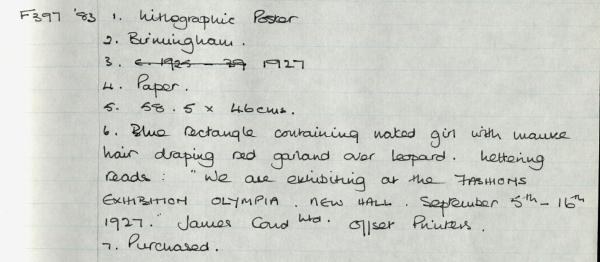 F397 '83 1. Lithographic Poster
2. Birmingham.
3. c. 1925 - 29 1927
4. Paper.
5. 58.5 x 46cms.
6. Blue rectangle containing naked girl with mauve
hair draping red garland over leopard. Lettering
reads: "We are exhibiting at the FASHIONS
EXHIBITION OLYMPIA. NEW HALL. September 5th - 16th
1927." James Cond Ltd. Offset Printers.
7. Purchased.